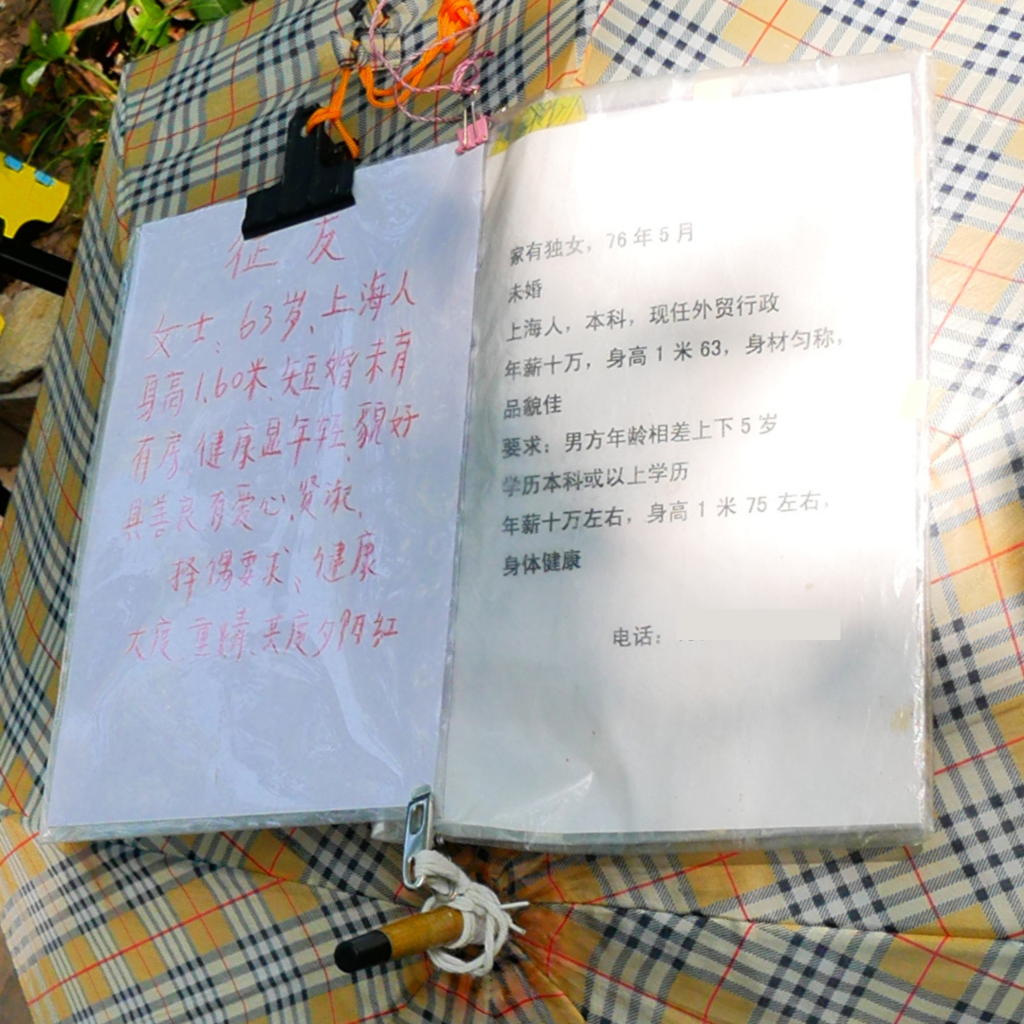 征友
女士、63岁、上海人
身高1.60米、短婚未育
有房、健康显年轻、貌好
具善良有爱心、贤淑、
择偶要求、健康
大度、重情、共度夕阳红
家有独女，76年5月
未婚
上海人，本科，现任外贸行政
年薪十万，身高1米63，身材匀称，
品貌佳
要求：男方年龄相差上下5岁
学历本科或以上学历
年薪十万左右，身高1米75左右，
身体健康
电话：